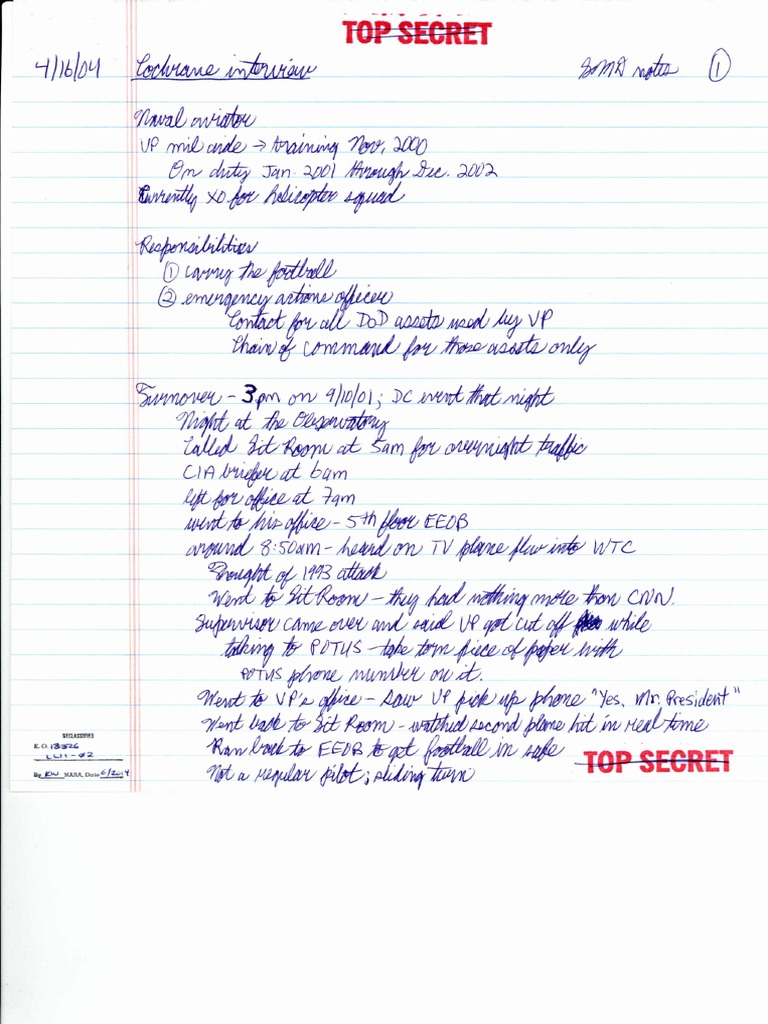 TOP SECRET
4/16/04 Cochrane interview notes ①
Naval aviator
VP mil aide → training Nov, 2000
On duty Jan. 2001 through Dec. 2002
Currently XO for helicopter squad
Responsibilities
① carry the football
② emergency actions officer
Contact for all DoD assets used by VP
Chain of command for those assets only
Turnover - 3pm on 9/10/01; DC event that night
Night at the Observatory
Called Sit Room at 5am for overnight traffic
CIA briefer at 6am
left for office at 7am
went to his office - 5th floor EEOB
around 8:50am - heard on TV plane flew into WTC
Thought of 1993 attack
Went to Sit Room - they had nothing more than CNN.
Supervisor came over and said VP got cut off while
talking to POTUS - take torn piece of paper with
POTUS phone number on it.
Went to VP's office - saw VP pick up phone "Yes, Mr. President"
Went back to Sit Room - watched second plane hit in real time
Ran back to EEOB to get football in safe
Not a regular pilot; sliding turn
TOP SECRET
DECLASSIFIED
E.O. 13526
By KW NARA, Date 6/2014